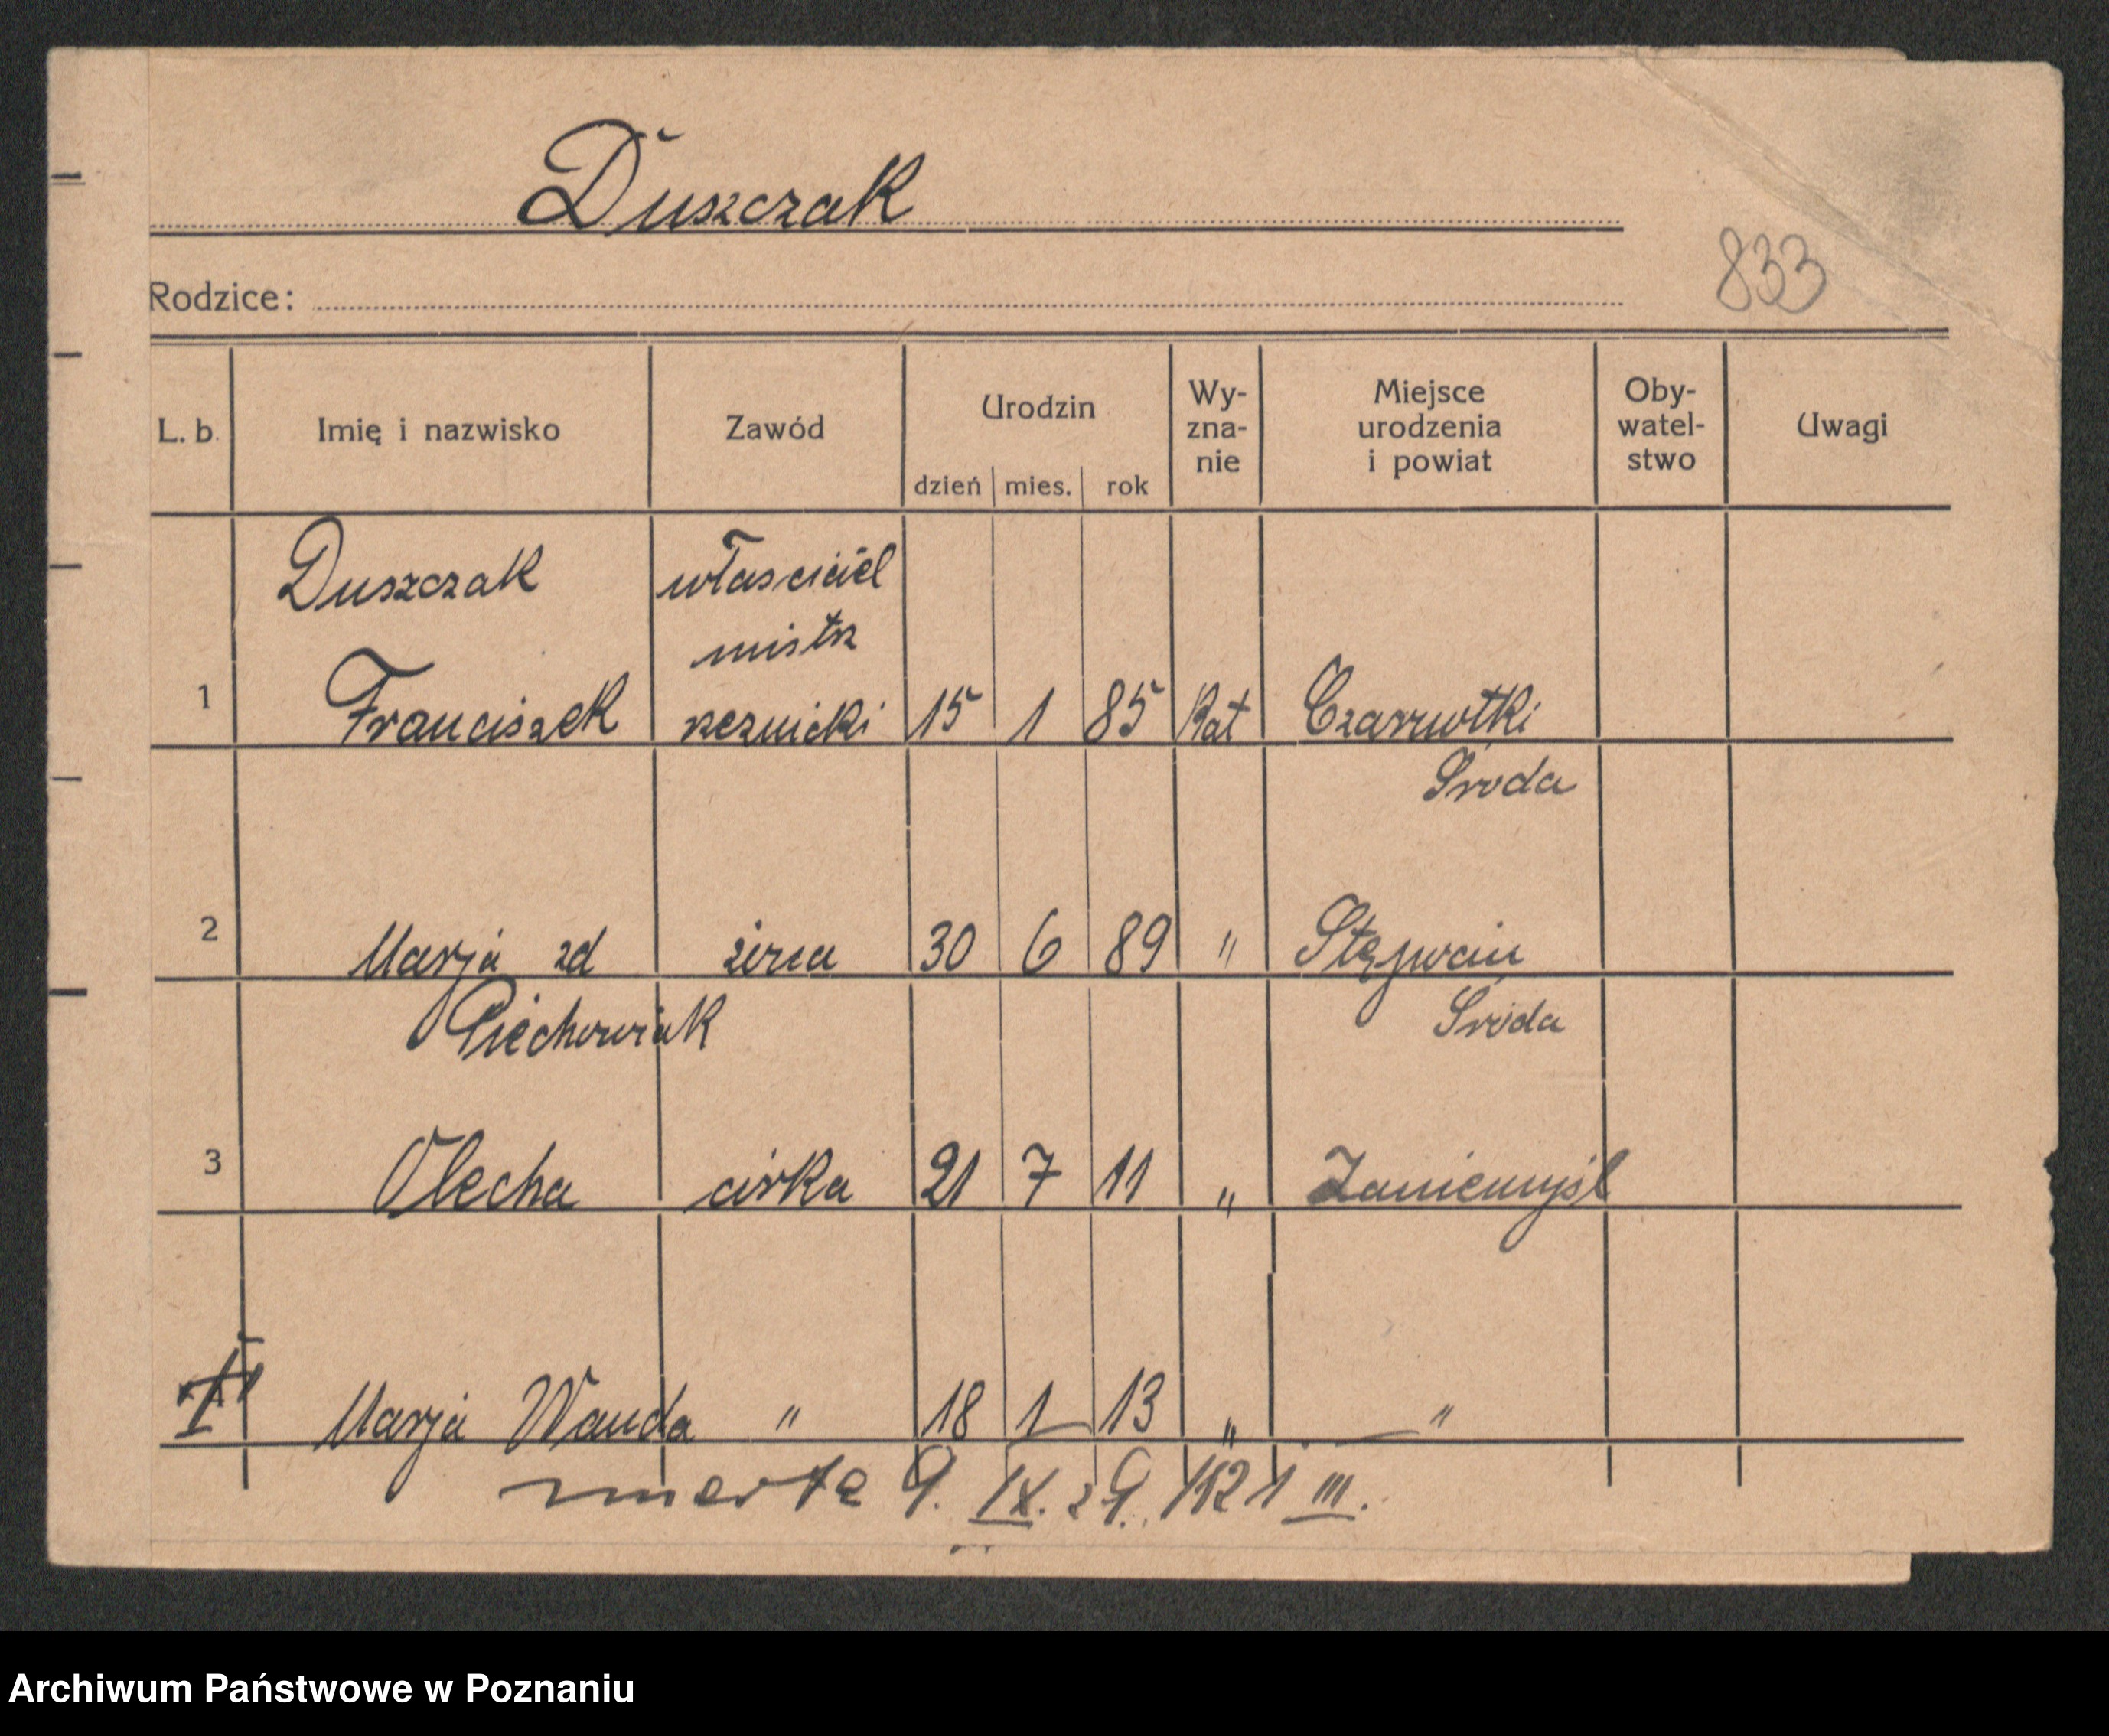 Duszczak
833
Rodzice:
L. b. Imię i nazwisko Zawód Urodzin dzień mies. rok Wy-zna-nie Miejsce urodzenia i powiat Oby-watel-stwo Uwagi
Duszczak właściciel
mistrz
1 Franciszek rzeznicki 15 1 85 Kat Czarnotki
Środa
2 Marja zd żona 30 6 89 "
Piechowiak Środa
3 córka 21 7 11 " Zaniemyśl
Marja Wanda " 18 1 13 " — "
zmarła 9. IX. 29.
Archiwum Państwowe w Poznaniu